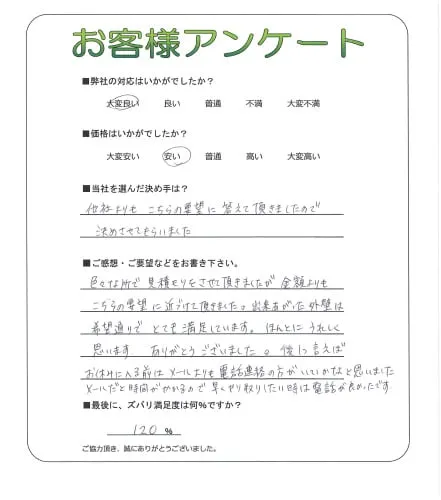 お客様アンケート
■弊社の対応はいかがでしたか?
大変良い 良い 普通 不満 大変不満
■価格はいかがでしたか?
大変安い 安い 普通 高い 大変高い
■当社を選んだ決め手は?
他社よりも こちらの要望に 答えて頂きましたので
決めさせてもらいました
■ご感想・ご要望などをお書き下さい。
色々な所で 見積もりをさせて頂きましたが 金額よりも
こちらの要望に 近づけて頂きました。出来あがった外壁は
希望通りで とても 満足しています。 ほんとに うれしく
思います ありがとうございました。 後 言えば
お休みに入る前は メールよりも 電話連絡の方が いいかなと思いました
メールだと時間がかかるので 早くやり取りしたい時は電話が良かったです
■最後に、ズバリ満足度は何%ですか?
120 %
ご協力頂き、誠にありがとうございました。